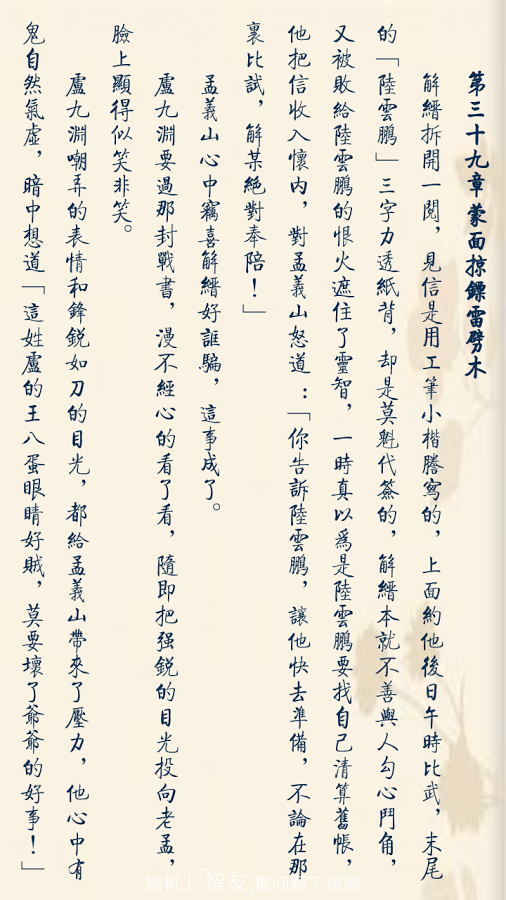 第三十九章蒙面掠鏢雷劈木
解縉拆開一閱，見信是用工筆小楷謄寫的，上面約他後日午時比武，末尾
的「陸雲鵬」三字力透紙背，却是莫魁代簽的，解縉本就不善與人勾心鬥角，
又被敗給陸雲鵬的恨火遮住了靈智，一時真以爲是陸雲鵬要找自己清算舊帳，
他把信收入懷內，對孟義山怒道：「你告訴陸雲鵬，讓他快去準備，不論在那
裏比試，解某絕對奉陪！」
孟義山心中竊喜解縉好誆騙，這事成了。
盧九淵要過那封戰書，漫不經心的看了看，隨即把强銳的目光投向老孟，
臉上顯得似笑非笑。
盧九淵嘲弄的表情和鋒銳如刀的目光，都給孟義山帶來了壓力，他心中有
鬼自然氣虛，暗中想道「這姓盧的王八蛋眼睛好賊，莫要壞了爺爺的好事！」
搞机上智友_提问题下资源